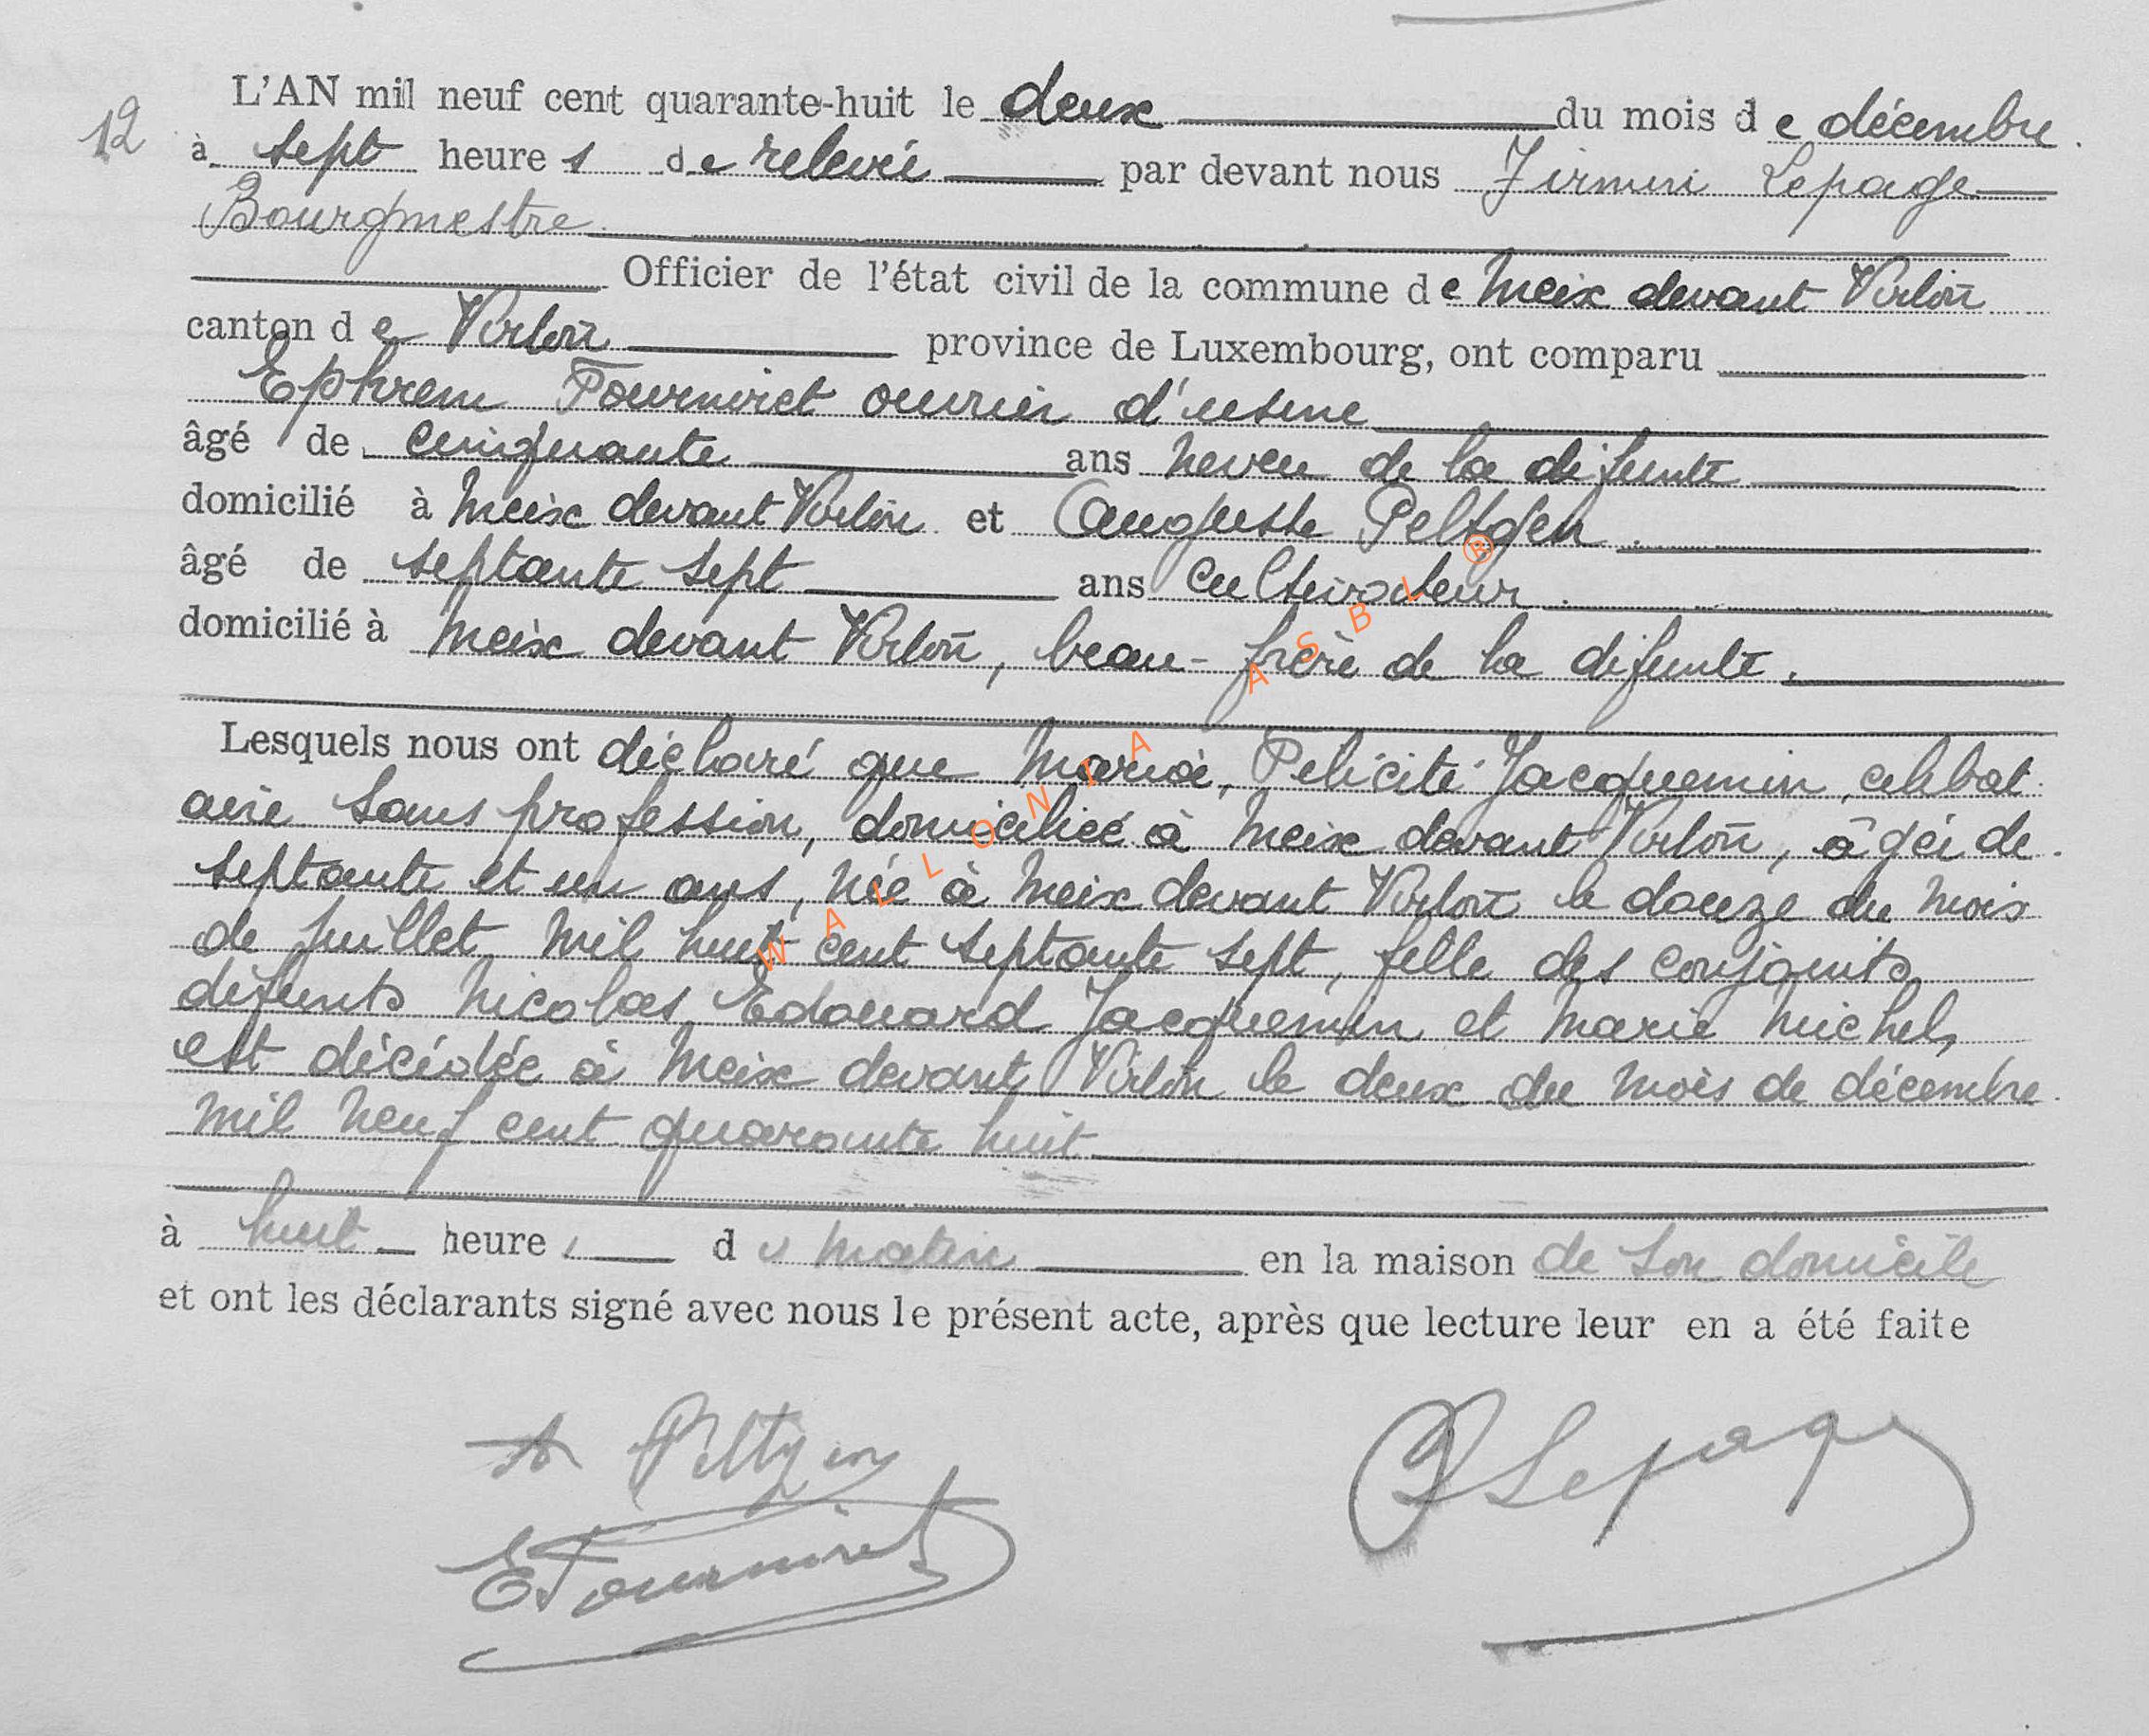 12
L'AN mil neuf cent quarante-huit le deux du mois de décembre
à sept heures de relevée par devant nous Firmin Lepage
Bourgmestre
Officier de l'état civil de la commune de Meix devant Virton
canton de Virton province de Luxembourg, ont comparu
Ephrem Fourniret ouvrier d'usine
âgé de cinquante ans neveu de la défunte
domicilié à Meix devant Virton et Auguste Peltgen
âgé de septante sept ans cultivateur
domicilié à Meix devant Virton, beau-frère de la défunte.
Lesquels nous ont déclaré que Maria, Félicité Jacquemin, célibat
aire sans profession, domiciliée à Meix devant Virton, âgée de
septante et un ans, née à Meix devant Virton le douze du mois
de juillet mil huit cent septante sept, fille des conjoints
défunts Nicolas Edouard Jacquemin et Marie Michel,
est décédée à Meix devant Virton le deux du mois de décembre
mil neuf cent quarante huit
à huit heures du matin en la maison de son domicile
et ont les déclarants signé avec nous le présent acte, après que lecture leur en a été faite
A Peltgen
E Fourniret
F Lepage
WALLONIA ASBL ®